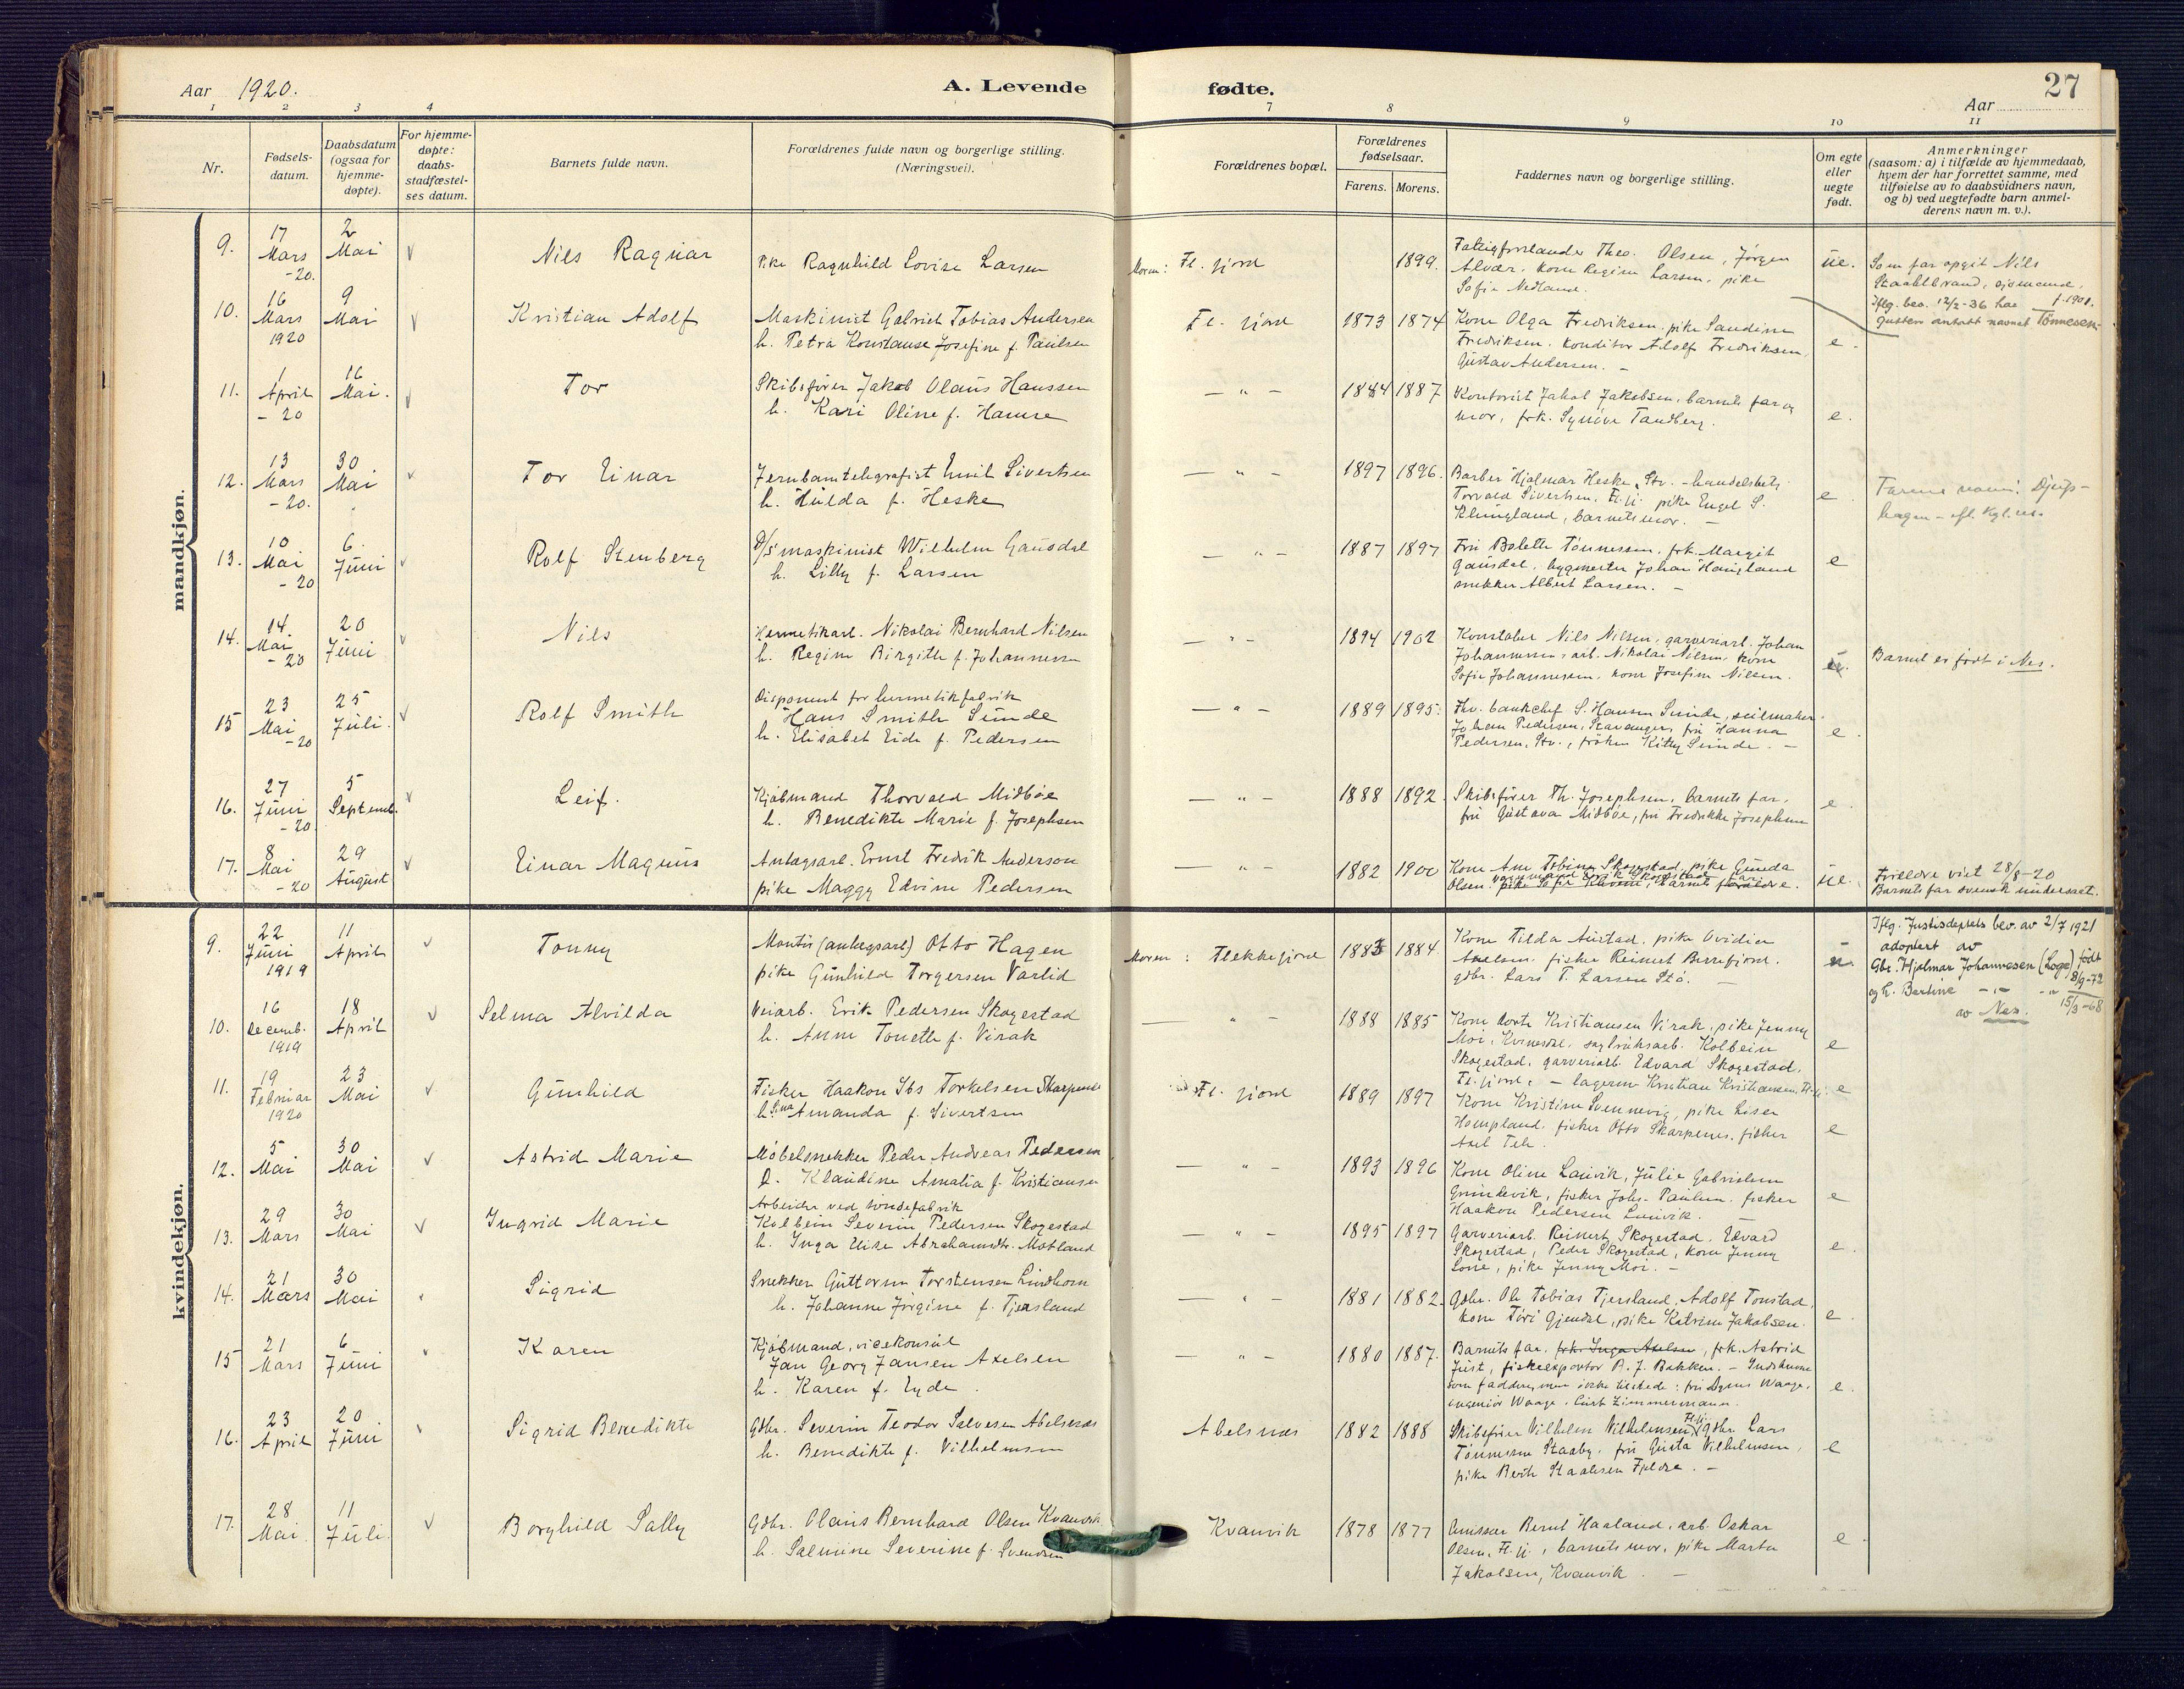 Aar 1920.
A. Levende fødte.
27
Aar
1 2 3 4 7 8 9 10 11
Nr.
Fødsels-
datum.
Daabsdatum
(ogsaa for
hjemme-
døpte).
For hjemme-
døpte:
daabs-
stadfæstel-
ses datum.
Barnets fulde navn.
Forældrenes fulde navn og borgerlige stilling.
(Næringsvei).
Forældrenes bopæl.
Forældrenes
fødselsaar.
Farens. Morens.
Faddernes navn og borgerlige stilling.
Om egte
eller
uegte
født.
Anmerkninger
(saasom: a) i tilfælde av hjemmedaab,
hvem der har forrettet samme, med
tilføielse av to daabsvidners navn,
og b) ved uegtefødte barn anmel-
derens navn m. v.).
mandkjøn.
9. 17 Mars -20. 2 Mai
Nils Ragnar
Pike Ragnhild Lovise Larsen
Moren: Fl. fjord
1899.
Theo. Olsen, Jørgen
Alvær, kone Regine Larsen, pike
Sofie Nedland.
ue.
Som far opgit Nils
Staalbrand, sjømand,
f. 1901.
Iflg. bev. 12/2-36 har
gutten antatt navnet Tönnesen
10. 16 Mars 1920 9 Mai
Kristian Adolf
Maskinist Gabriel Tobias Andersen
h. Petra Konstanse Josefine f. Paulsen
Fl. fjord
1873 1874
Kone Olga Fredriksen, pike Sandine
Fredriksen, konditor Adolf Fredriksen,
Gustav Andersen. -
e.
11. 1 April -20 16 Mai.
Tor
Skibsfører Jakob Olaus Hanssen
h. Kari Oline f. Hamre
- " -
1884 1887
Kontorist Jakob Jakobsen, barnets far og
mor, frk. Synöve Tandberg.
e.
12. 13 Mars -20. 30 Mai
Tor Einar
Jernbanetelegrafist Emil Sivertsen
h. Hulda f. Heske
- " -
1897 1896.
Barber Hjalmar Heske, Stv. - handelsbetj.
Torvald Sivertsen, Fl.fj. pike Engel S.
Klungland, barnets mor. -
e.
Farens navn: Djup-
hagen -
13. 10 Mai -20 6. Juni
Rolf Stenberg
D/S maskinist Wilhelm Gausdal
h. Lilly f. Larsen
- " -
1887 1897
Fru Bolette Tönnessen, frk. Margit
Gausdal, bygmester Johan Haugland
snekker Albert Larsen. -
e
14. 14. Mai -20 20 Juni
Nils
Hermetikarb. Nikolai Bernhard Nilsen
h. Regine Birgitte f. Johannessen
- " -
1894 1902
Konstabel Nils Nilsen, garveriarb. Johan
Johannessen, arb. Nikolai Nilsen, kone
Sofie Johannessen, kone Josefine Nilsen.
Barnet er født i Nes.
15 23 Mai -20 25 Juli.
Rolf Smith
Disponent for hermetikfabrik
Hans Smith Sunde
h. Elisabet Eide f. Pedersen
- " -
1889 1895.
Fhv. bankchef S. Hansen Sunde, seilmaker
Johan Pedersen, Stavanger, fru Hanna
Pedersen, Stv., frøken Kitty Sunde. -
e.
16. 27 Juni -20 5 Septemb.
Leif.
Kjøbmand Thorvald Midbøe
h. Benedikte Marie f. Josephsen
- " -
1888 1892.
Skibsfører Th. Josephsen, barnets far,
fru Gustava Midbøe, fru Fredrikke Josephsen
e.
17. 8 Mai -20 29 August
Einar Magnus
Anlægsarb. Ernst Fredrik Anderson
pike Maggy Edvine Pedersen
- " -
1882 1900
Kone Ane Tobine Skogestad, pike Gunda
Olsen, pike Sofie, barnets forældre.
ue.
Forældre viet 28/8-20
Barnets far svensk undersaat.
kvindekjøn.
9. 22 Juni 1919 11 April
Tonny
Montør (anlegsarb) Otto Hagen
pike Gunhild Torgersen Varlid
Moren: Flekkefjord
1883 1884.
Kone Tilda Austad, pike Ovidie
Axelsen, fisker Reinert Berrefjord,
gdbr. Lars T. Larsen Stö. -
Iflg. Justisdeptets bev. av 2/7 1921
adoptert av
Gbr. Hjalmar Johannesen (Loge) født
8/9-72
og h. Bertine - " - " 15/3-68
av Nes.
10. 16 Decemb. 1919 18 April
Selma Alvilda
Veiarb. Erik Pedersen Skogestad
h. Anne Tonette f. Virak
- " -
1888 1885
Kone Dorte Kristiansen Virak, pike Jenny
Moi, Kvinesdal, sagbruksarb. Kolbein
Skogestad, garveriarb. Edvard Skogestad,
Fl.fjord, - lagerm. Kristian Kristiansen, Fl.fj.
e
e
11. 19 Februar 1920 23 Mai
Gunhild
Fisker Haakon Ibs Torkelsen Skarpenes
h. Sina Amanda f. Sivertsen
Fl. fjord
1889 1897
Kone Kristine Svennevig, pike Lisa
Hompland, fisker Otto Skarpenes, fisker
Axel
e
12. 5 Mai 30 Mai
Astrid Marie
Møbelsnekker Peder Andreas Pedersen
h. Klaudine Amalia f. Kristiansen
- " -
1893 1896
Kone Oline Lauvik, Julie Gabrielsen
Grindevik, fisker Johs. Paulsen, fisker
Haakon Pedersen Lauvik. -
e
13. 29 Mars 30 Mai
Ingrid Marie
Arbeider ved tøndefabrik
Kolbein Severin Pedersen Skogestad
h. Inga Elise Abrahamsdtr. Motland
- " -
1895 1897
Garveriarb. Reinert Skogestad, Edvard
Skogestad, Peder Skogestad, kone Jenny
Lone, pike Jenny Moi. -
e.
14. 21 Mars 30 Mai
Sigrid
Snekker Guttorm Torstensen Lindhom
h. Johanne Jörgine f. Tjersland
- " -
1881 1882.
Gdbr. Ole Tobias Tjersland, Adolf Tonstad,
kone Töri Gjendal, pike Katrine Jakobsen.
e.
15 21 Mars 6 Juni
Karen
Kjøbmand, vicekonsul
Jan Georg Jansen Axelsen
h. Karen f. Eyde.
- " -
1880 1887.
Barnets far, frk. Inga Axelsen, frk. Astrid
Just, fiskeeksportør B. J. Bakken. - Indskrevne
som faddere, men ikke tilstede: fru Agnes Waage,
ingeniør Waage, Curt Zimmermann.
e.
16. 23 April 20 Juni
Sigrid Benedikte
Gdbr. Severin Teodor Salvesen Abelsnæs
h. Benedikte f. Vilhelmsen
Abelsnæs
1882 1888
Skibsfører Vilhelm Vilhelmsen, Fl.fj. gdbr. Lars
Tönnessen Staaby, fru Gusta Vilhelmsen,
pike Berte Staalesen Fjeldse. -
e
17. 28 Mai. 11 Juli.
Borghild Sally
Gdbr. Olaus Bernhard Olsen Kvanvik
h. Salmine Severine f. Svendsen
Kvanvik
1878 1877
Emissær Bernt Haaland, arb. Oskar
Olsen, Fl.fj., barnets mor, pike Marta
Jakobsen, Kvanvik. -
e.